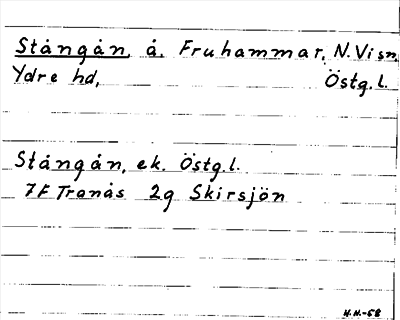 Stångån, å, Fruhammar, N.Visn.
Ydre hd, Östg.l.
Stångån, ek. Östg.l.
7F Tranås 2g Skirsjön
H.H.-68